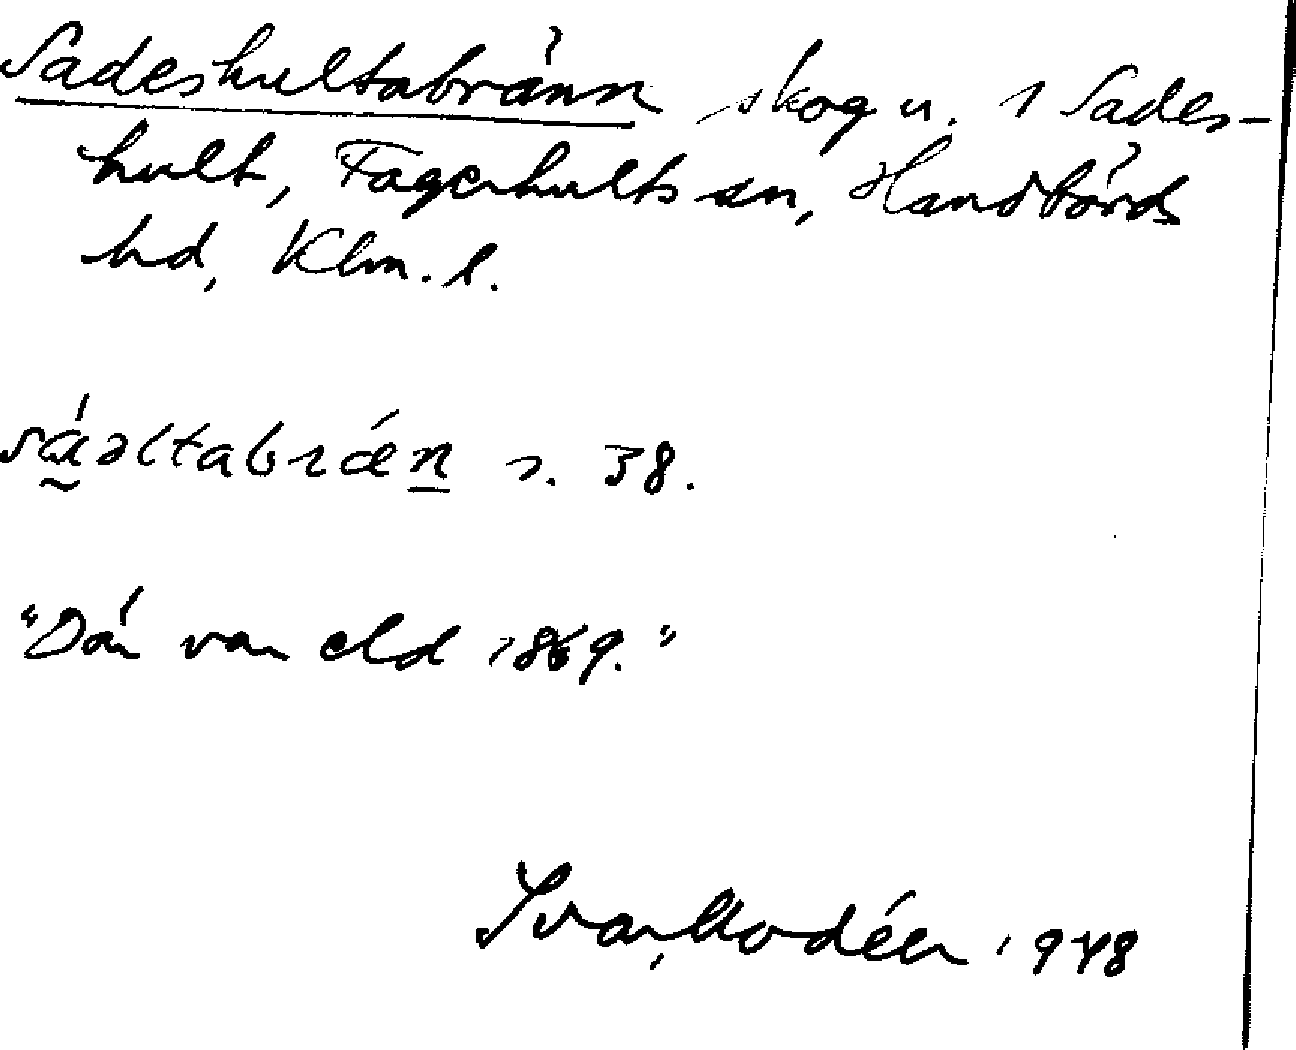 Sadeshultabränn skog u. 1 Sades-
hult, Fagerhults sn, Handbörds
hd, Klm. l.
sáəltabræn s. 38.
"Där var eld 1869."
Ivar Modéer 1948